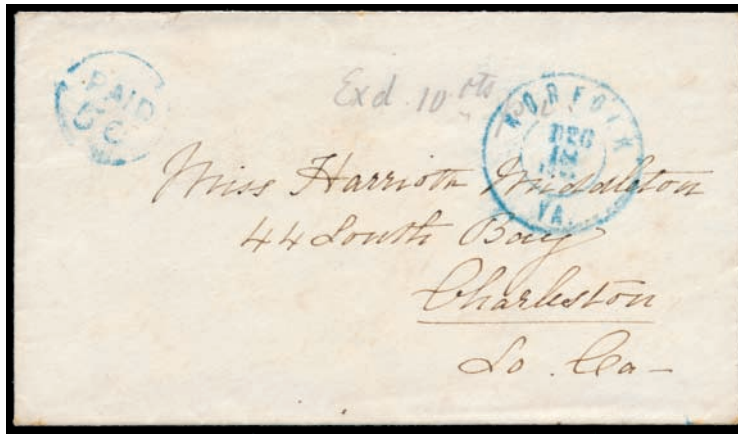 PAID
Exd 10 cts
NORFOLK
DEC
VA.
Miss Harriott Middleton
44 South Bay
Charleston
So. Ca-